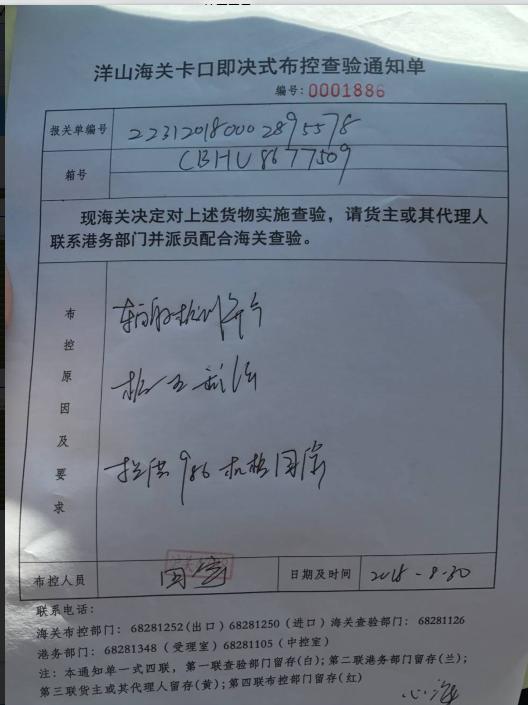 洋山海关卡口即决式布控查验通知单
编号:0001886
报关单编号 223120180002895578
箱号 CBHU8677509
现海关决定对上述货物实施查验，请货主或其代理人
联系港务部门并派员配合海关查验。
布控原因及要求
986机检图像
布控人员
日期及时间 2018-8-30
联系电话：
海关布控部门：68281252(出口)68281250(进口)海关查验部门：68281126
港务部门：68281348(受理室)68281105(中控室)
注：本通知单一式四联，第一联查验部门留存(白)；第二联港务部门留存(兰)；
第三联货主或其代理人留存(黄)；第四联布控部门留存(红)